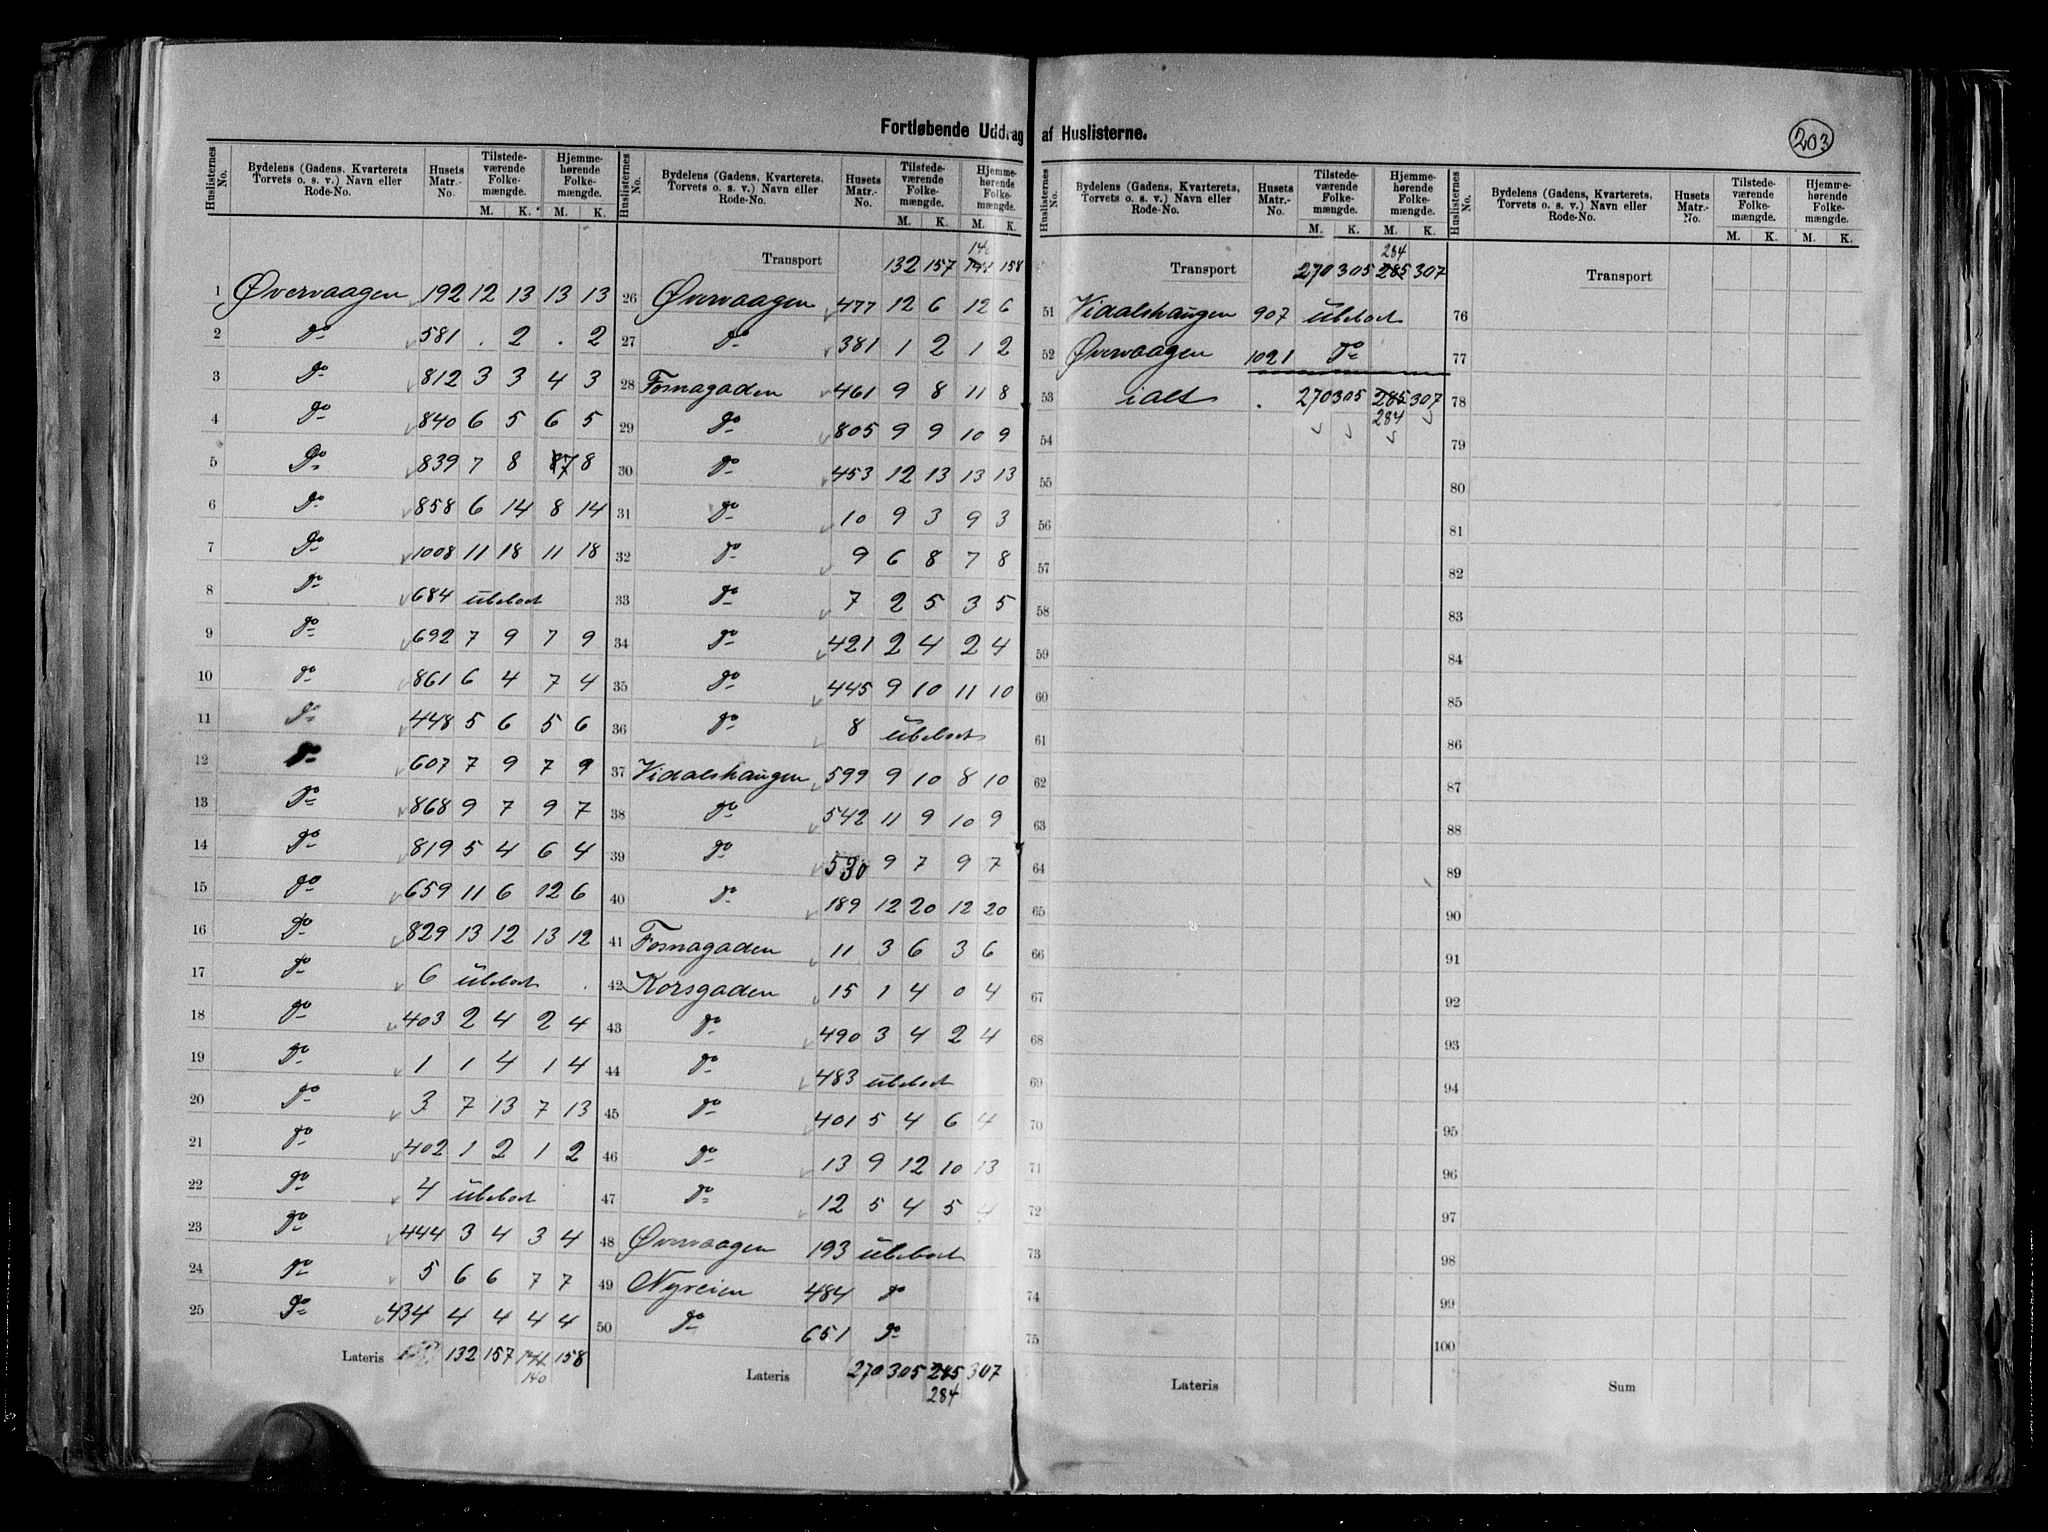 Fortløbende Uddrag af Huslisterne.
203
Huslisternes No. Bydelens (Gadens, Kvarterets Torvets o. s. v.) Navn eller Rode-No. Husets Matr.-No. Tilstedeværende Folkemængde. M. K. Hjemmehørende Folkemængde. M. K.
1 Øvervaagen 192 12 13 13 13
2 Do 581 . 2 . 2
3 Do 812 3 3 4 3
4 Do 840 6 5 6 5
5 Do 839 7 8 7 8
6 Do 858 6 14 8 14
7 Do 1008 11 18 11 18
8 Do 684 ubeboet
9 Do 692 7 9 7 9
10 Do 861 6 4 7 4
11 Do 448 5 6 5 6
12 Do 607 7 9 7 9
13 Do 868 9 7 9 7
14 Do 819 5 4 6 4
15 Do 659 11 6 12 6
16 Do 829 13 12 13 12
17 Do 6 ubeboet
18 Do 403 2 4 2 4
19 Do 1 1 4 1 4
20 Do 3 7 13 7 13
21 Do 402 1 2 1 2
22 Do 4 ubeboet
23 Do 444 3 4 3 4
24 Do 5 6 6 7 7
25 Do 434 4 4 4 4
Lateris 132 157 141 158
140
Huslisternes No. Bydelens (Gadens, Kvarterets, Torvets o. s. v.) Navn eller Rode-No. Husets Matr.-No. Tilstedeværende Folkemængde. M. K. Hjemmehørende Folkemængde. M. K.
Transport 132 157 158
26 Øvervaagen 477 12 6 12 6
27 Do 381 1 2 1 2
28 Fosnagaden 461 9 8 11 8
29 Do 805 9 9 10 9
30 Do 453 12 13 13 13
31 Do 10 9 3 9 3
32 Do 9 6 8 7 8
33 Do 7 2 5 3 5
34 Do 421 2 4 2 4
35 Do 445 9 10 11 10
36 Do 8 ubeboet
37 Vidalshaugen 599 9 10 8 10
38 Do 542 11 9 10 9
39 Do 530 9 7 9 7
40 Do 189 12 20 12 20
41 Fosnagaden 11 3 6 3 6
42 Korsgaden 15 1 4 0 4
43 Do 490 3 4 2 4
44 Do 483 ubeboet
45 Do 401 5 4 6 4
46 Do 13 9 12 10 13
47 Do 12 5 4 5 4
48 Øvervaagen 193 ubeboet
49 Nyveien 484 Do
50 Do 651 Do
Lateris 270 305 285 307
284
Huslisternes No. Bydelens (Gadens, Kvarterets, Torvets o. s. v.) Navn eller Rode-No. Husets Matr.-No. Tilstedeværende Folkemængde. M. K. Hjemmehørende Folkemængde. M. K.
284
Transport 270 305 285 307
51 Vidalshaugen 907 ubeboet
52 Øvervaagen 1021 Do
53 ialt . 270 305 285 307
284
54
55
56
57
58
59
60
61
62
63
64
65
66
67
68
69
70
71
72
73
74
75
Lateris
Huslisternes No. Bydelens (Gadens, Kvarterets, Torvets o. s. v.) Navn eller Rode-No. Husets Matr.-No. Tilstedeværende Folkemængde. M. K. Hjemmehørende Folkemængde. M. K.
Transport
76
77
78
79
80
81
82
83
84
85
86
87
88
89
90
91
92
93
94
95
96
97
98
99
100
Sum